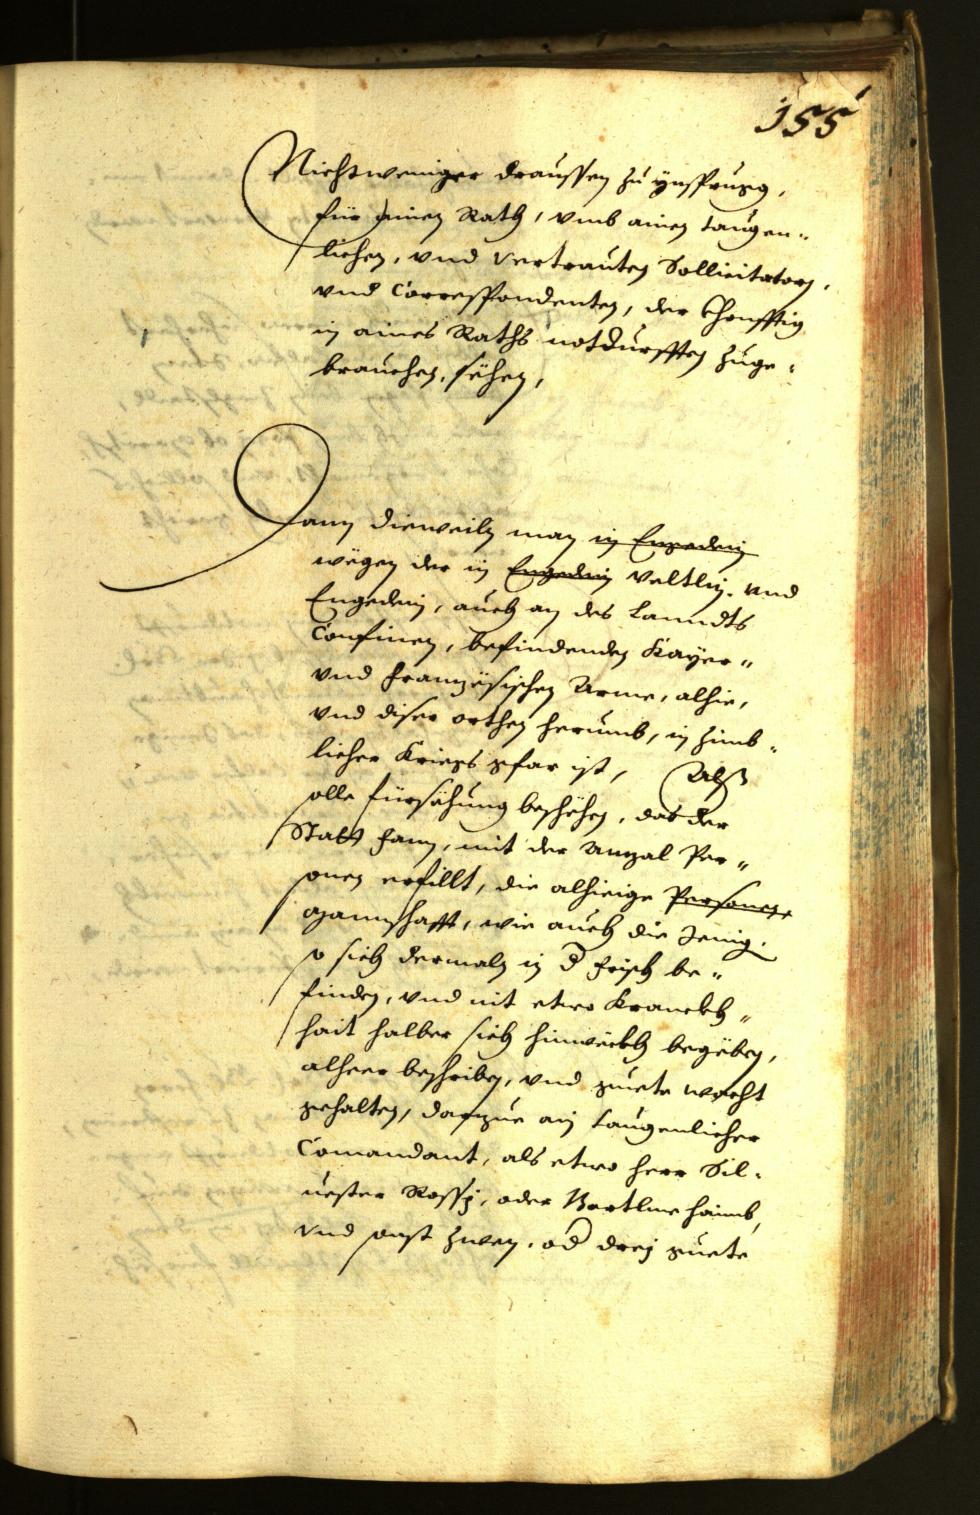 155
Nicht weniger draussen zu ÿnsprugg,
für einen Rath, vmb ainen taugen¬
lichen, vnd vertrauten Sollicitatorn,
vnd Correspondenten, der khonfftig
in aines Raths notdurfften zuge¬
brauchen, sëhen,
Dann dieweiln man in Engedein
wëgen der in Engedein Veltlin. vnd
Engedein, auch an des Lanndts
Confinen, befindenden Kaÿser¬
vnd französischen Arme, alhie,
vnd diser orthen herumb, in zimb¬
licher Kriegs gfar ist, Alß
solle fürsëhung beschëhen, das der
Statt fann, mit der Anzal Per¬
sonen erfillt, die alhieige Personen
Mannschafft, wie auch die Jenig.
so sich dermaln in d frisch be¬
finden, vnd nit etwo Kranckh¬
hait halber sich hinwëckh begëben,
alheer beschriben, vnd guete wacht
gehalten, darzue ain taugenlicher
Comandant, als etwo herr Sil¬
uester Rossj, oder Bartlme haimb,
vnd sonst zwen, od dreÿ guete